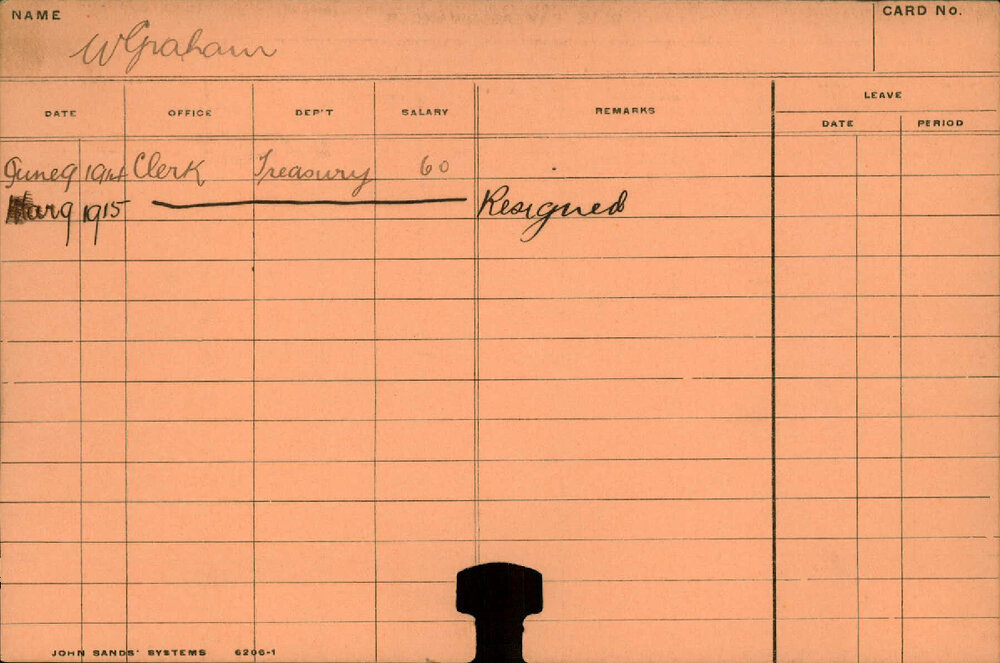 NAME CARD No.
W Graham
LEAVE
DATE OFFICE DEP'T SALARY REMARKS DATE PERIOD
June 9 1914 Clerk Treasury 60
Mar 9 1915 Resigned
JOHN SANDS' SYSTEMS 6206-1